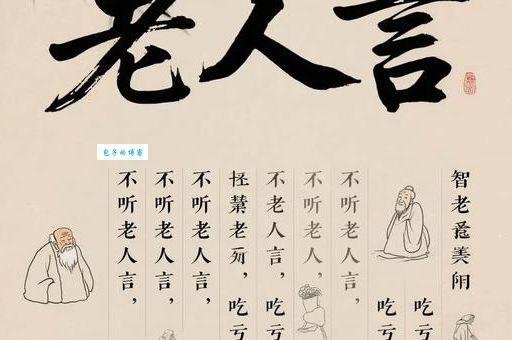 老人言
包子的博客
智老
吃亏
吃亏
不听老人言，
不听老人，
不老人言，吃亏
老，吃亏
不听老人言，
不听老人言，
不听老人言，